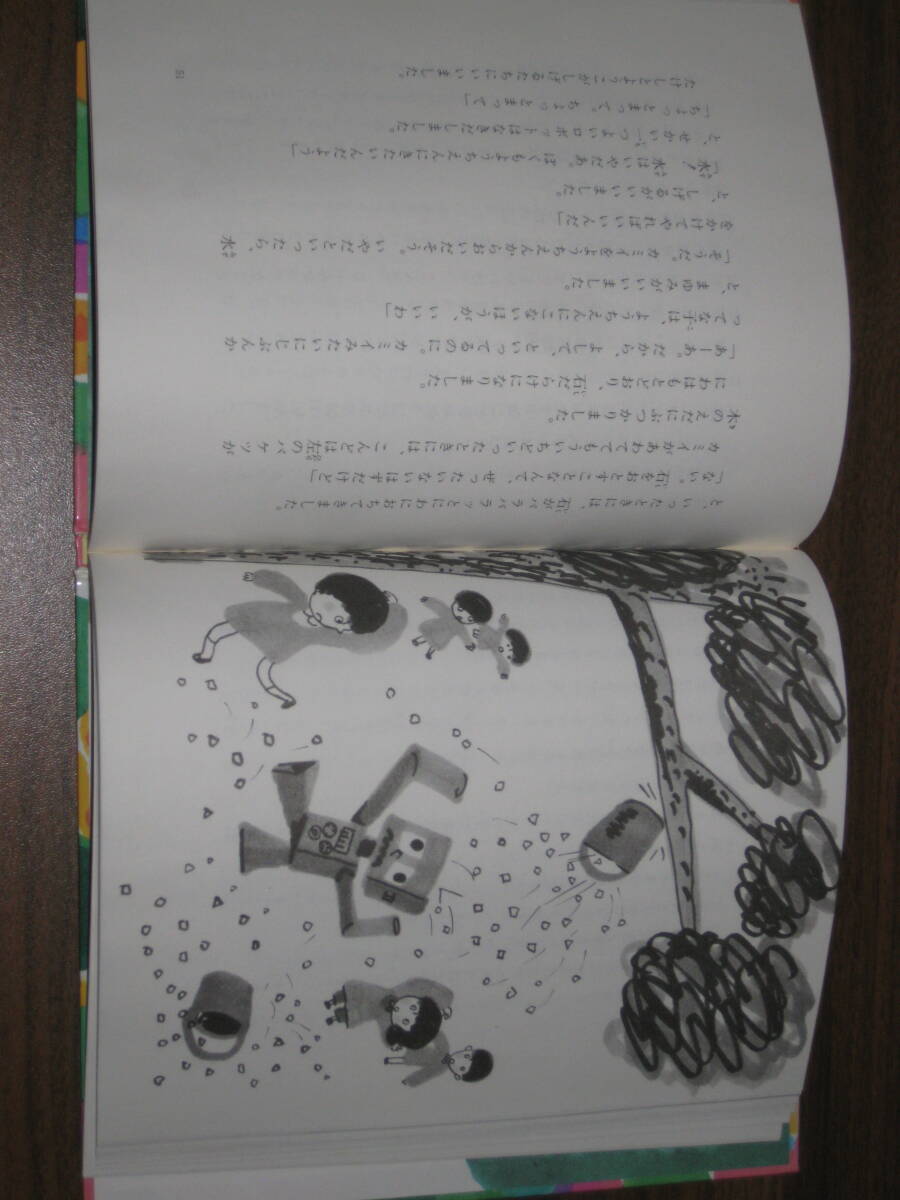 と、いったときには、石がバラバラッとにわにおちてきました。
「ない。石をおとすことなんて、ぜったいないはずだけど」
カミイがあわててもういちどいったときには、こんどは左のバケツが
木のえだにぶつかりました。
にわはもとどおり、石だらけになりました。
「あーあ。だから、よして、といってるのに。カミイみたいにじぶんか
ってな子は、ようちえんにこないほうが、いいわ」
と、まゆみがいいました。
「そうだ。カミイをようちえんからおいだそう。いやだといったら、水
をかけてやればいいんだ」
と、しげるがいいました。
「水！　水はいやだあ。ぼくもようちえんにきたいんだよう」
と、せかい一つよいロボットはなきだしました。
「ちょっとまって。ちょっとまって」
たけしとようこがしげるたちにいいました。
51